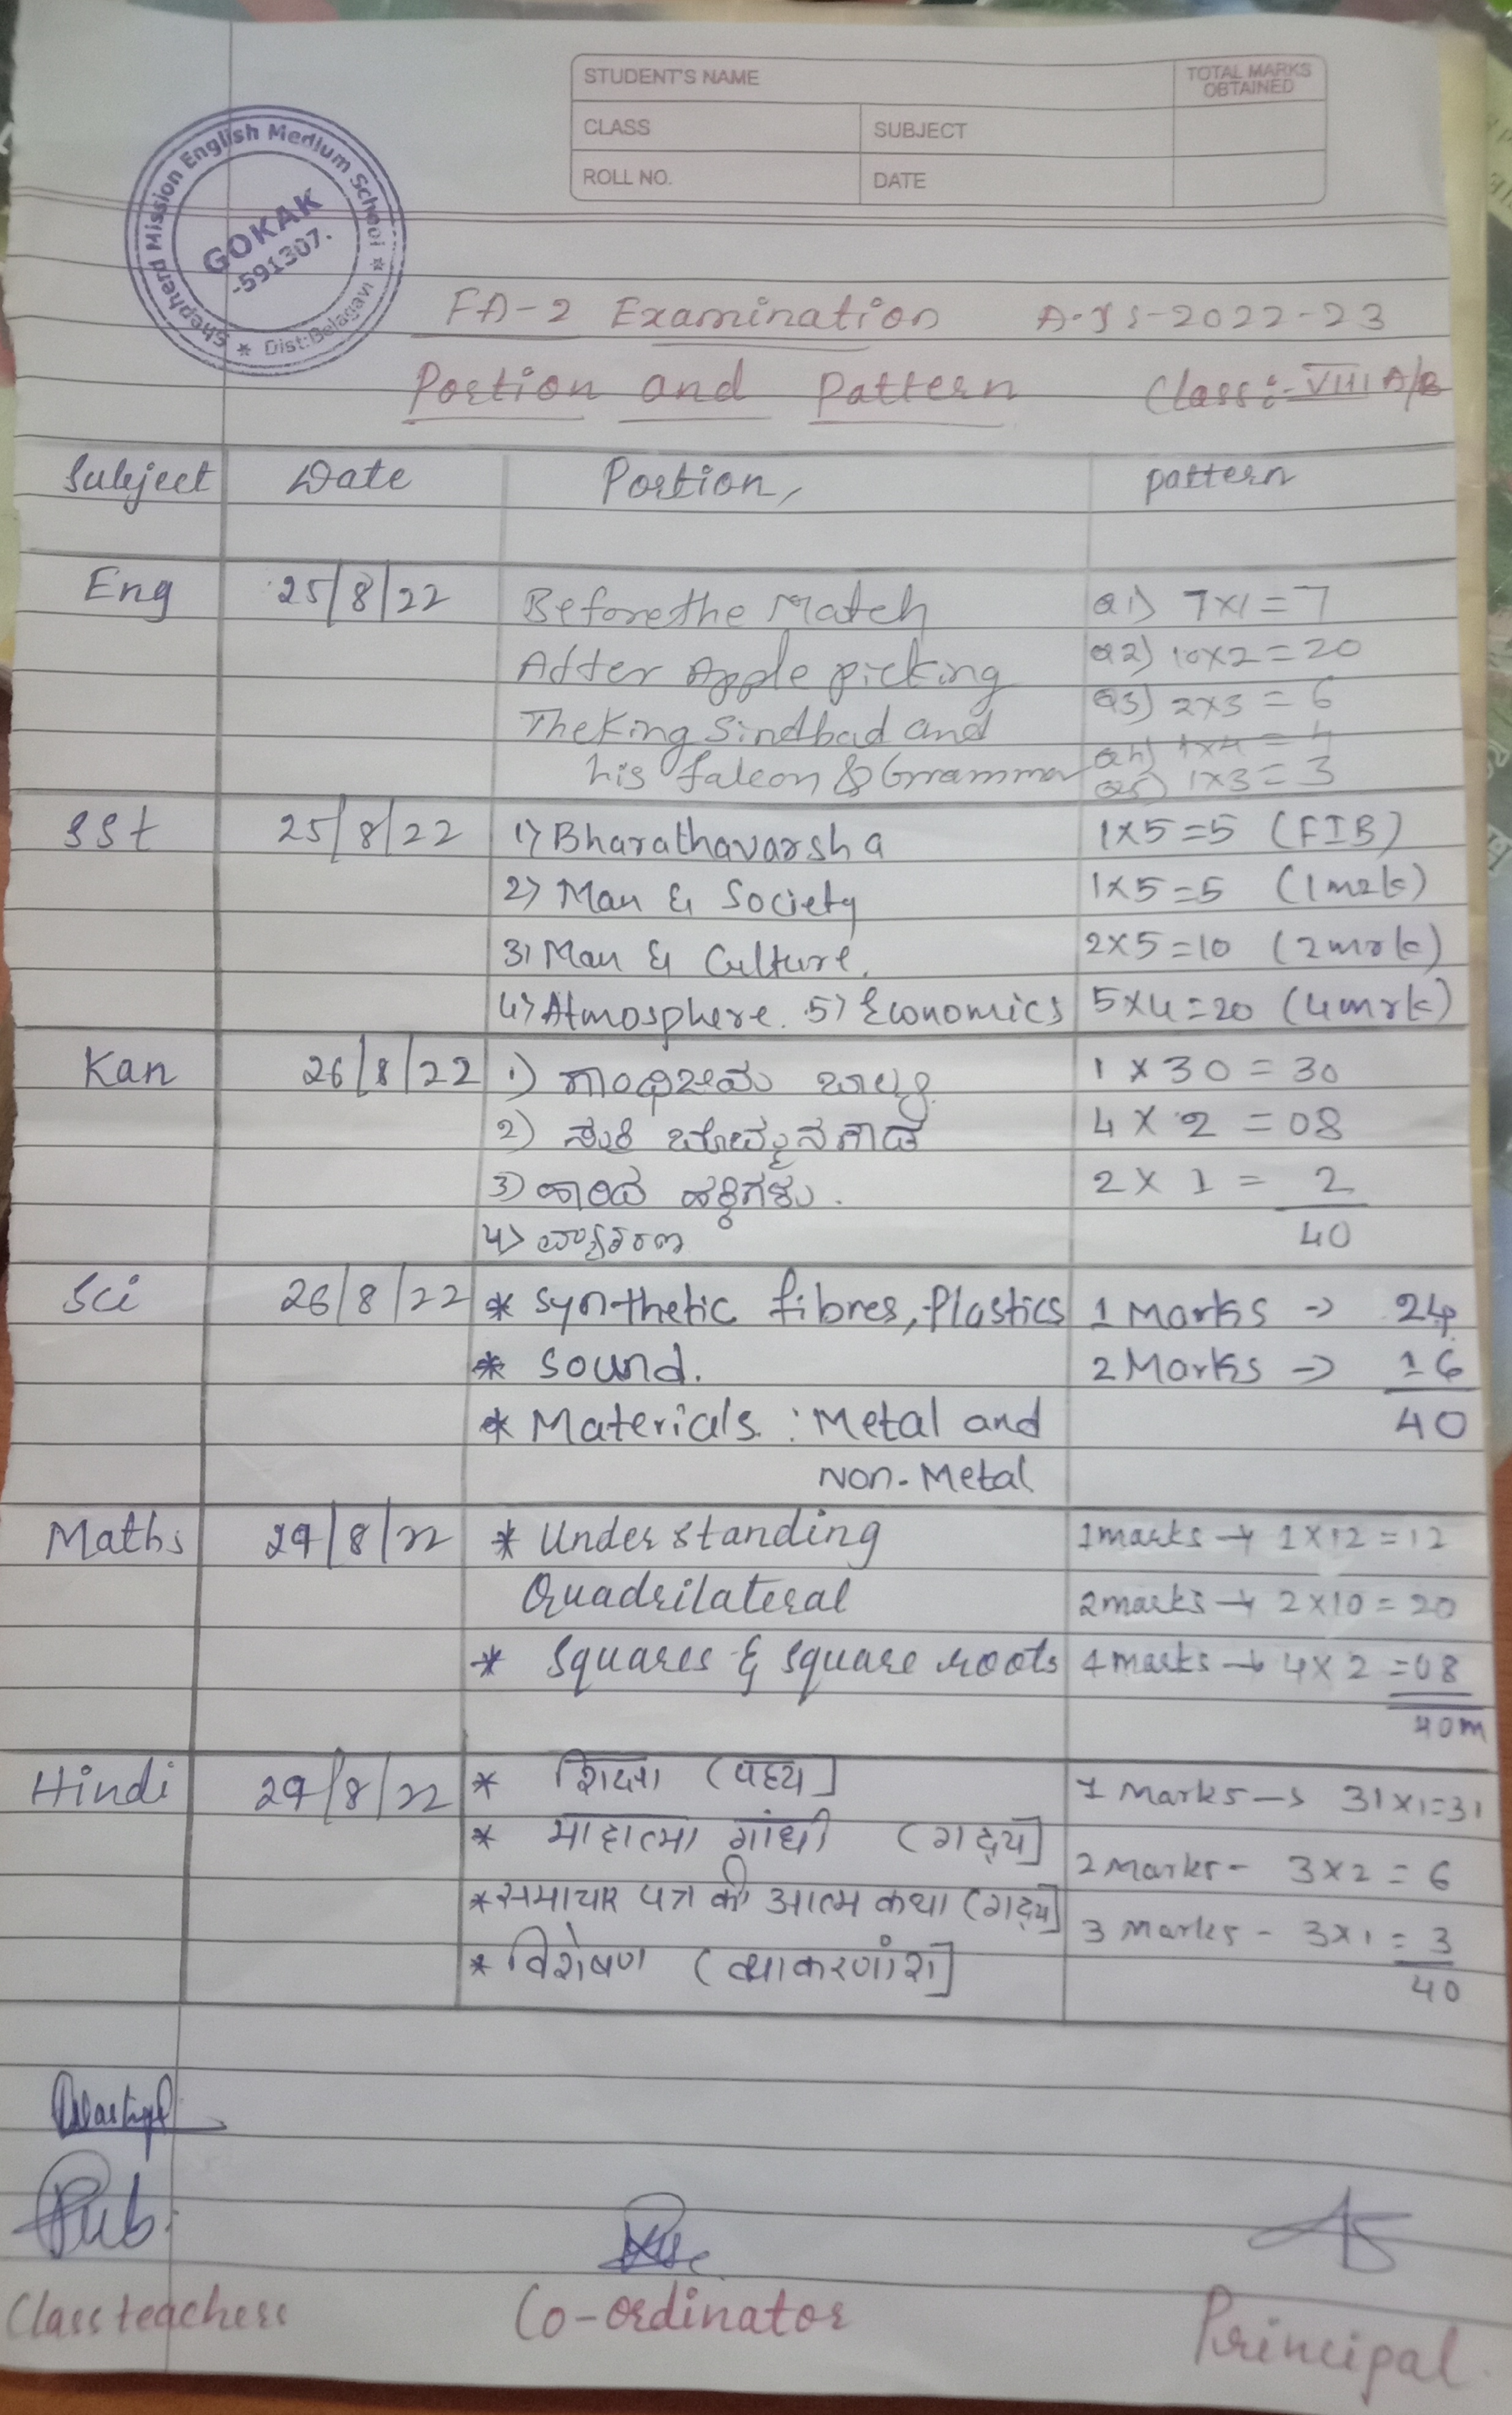 STUDENT'S NAME
TOTAL MARKS OBTAINED
CLASS
SUBJECT
ROLL NO.
DATE
Shepherd Mission English Medium School
GOKAK
-591307.
* Dist:Belagavi *
FA-2 Examination A.YS-2022-23
Portion and Pattern Class:- VIII A/B
Subject Date Portion, pattern
Eng 25/8/22 Before the Match Q1) 7x1=7
After Apple picking Q2) 10x2=20
Q3) 2x3=6
The King Sindbad and Q4) 1x4=4
his falcon & Grammar Q5) 1x3=3
SSt 25/8/22 1) Bharathavarsha 1x5=5 (FIB)
2) Man & Society 1x5=5 (1mrk)
3) Man & Culture. 2x5=10 (2mrk)
4) Atmosphere. 5) Economics 5x4=20 (4mrk)
Kan 26/8/22 1) ಗಾಂಧೀಜಿಯ ಬಾಲ್ಯ 1 x 30 = 30
2) 4 x 2 = 08
3) ಹಕ್ಕಿಗಳು. 2 x 1 = 2
4) ವ್ಯಾಕರಣ 40
Sci 26/8/22 * Synthetic fibres, Plastics 1 Marks -> 24
* Sound. 2 Marks -> 16
* Materials : Metal and 40
Non-Metal
Maths 29/8/22 * Understanding 1marks → 1x12=12
Quadrilateral 2marks → 2x10=20
* Squares & square roots 4marks → 4x2=08
40m
Hindi 29/8/22 * शिक्षा (पद्य) 1 Marks -> 31x1=31
* माहात्मा गांधी (गद्य) 2 Marks - 3x2=6
* समाचार पत्र की आत्म कथा (गद्य) 3 Marks - 3x1=3
* विशेषण (व्याकरणांश) 40
Class teachers Co-ordinator Principal